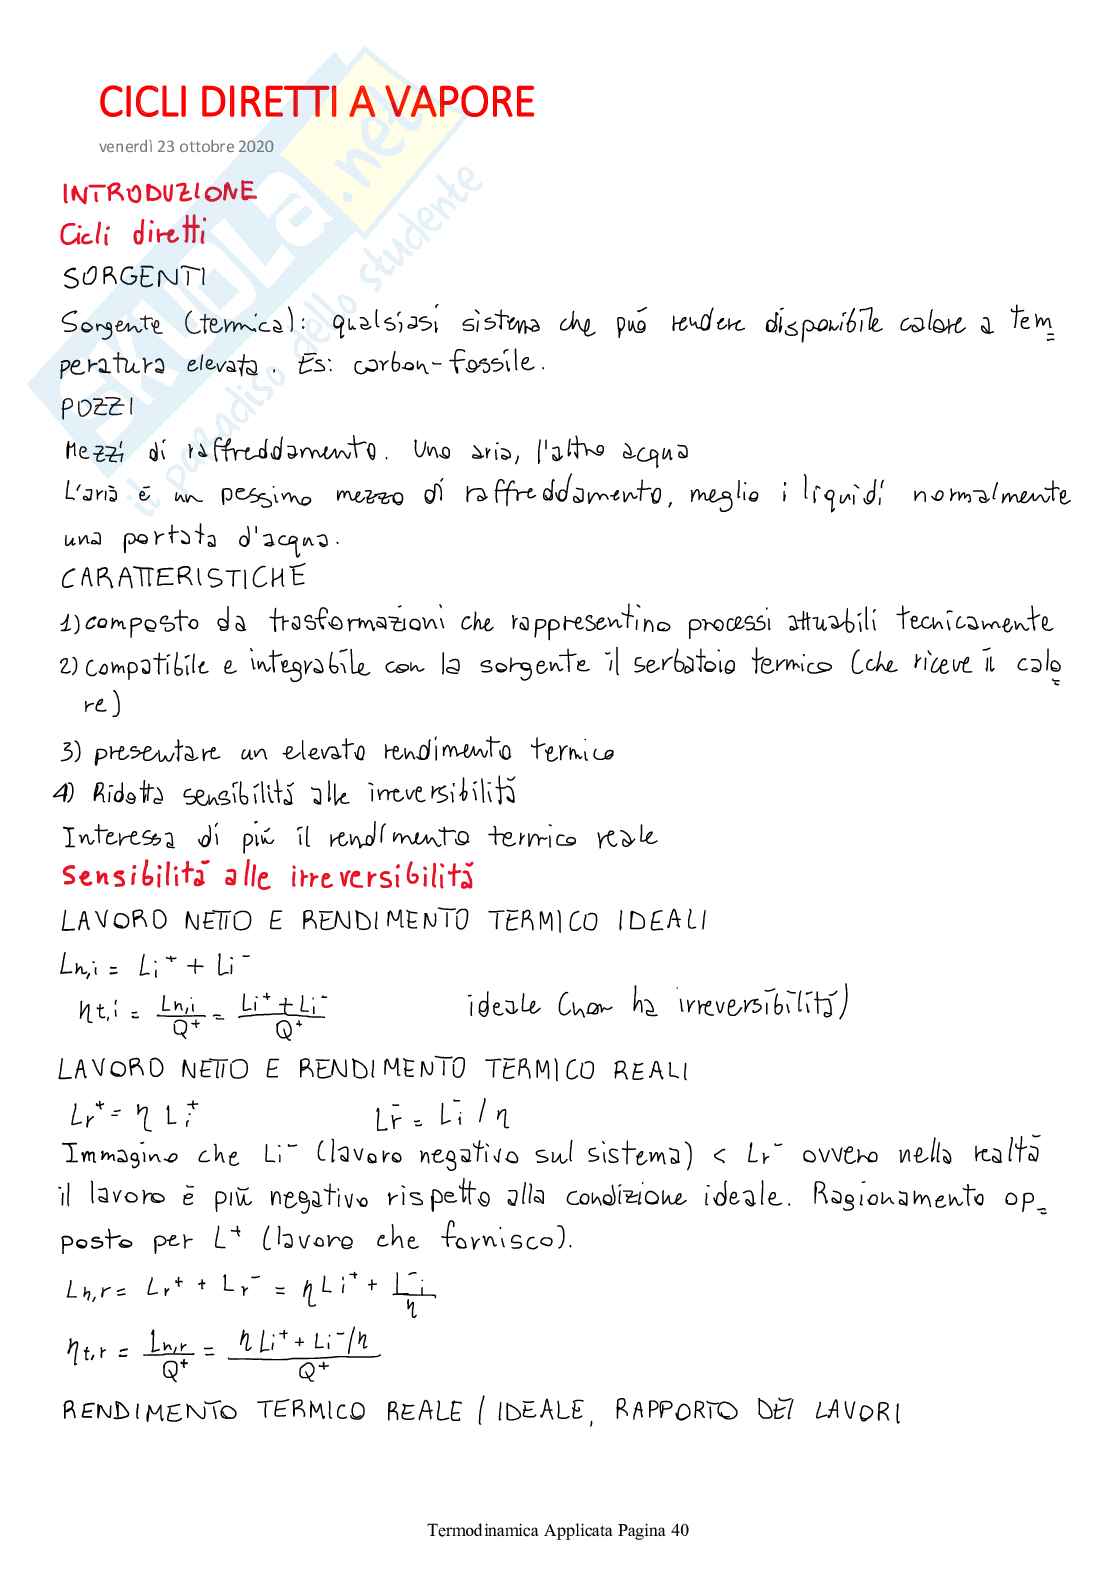 CICLI DIRETTI A VAPORE
venerdì 23 ottobre 2020
INTRODUZIONE
Cicli diretti
SORGENTI
Sorgente (termica): qualsiasi sistema che può rendere disponibile calore a tem=
peratura elevata. Es: carbon-fossile.
POZZI
Mezzi di raffreddamento. Uno aria, l'altro acqua
L'aria è un pessimo mezzo di raffreddamento, meglio i liquidi normalmente
una portata d'acqua.
CARATTERISTICHE
1) composto da trasformazioni che rappresentino processi attuabili tecnicamente
2) compatibile e integrabile con la sorgente il serbatoio termico (che riceve il calo=
re)
3) presentare un elevato rendimento termico
4) Ridotta sensibilità alle irreversibilità
Interessa di più il rendimento termico reale
Sensibilità alle irreversibilità
LAVORO NETTO E RENDIMENTO TERMICO IDEALI
Ln,i = Li⁺ + Li⁻
ηt,i = Ln,i/Q⁺ = (Li⁺ + Li⁻)/Q⁺ ideale (non ha irreversibilità)
LAVORO NETTO E RENDIMENTO TERMICO REALI
Lr⁺ = η Li⁺ Lr⁻ = Li⁻ / η
Immagino che Li⁻ (lavoro negativo sul sistema) < Lr⁻ ovvero nella realtà
il lavoro è più negativo rispetto alla condizione ideale. Ragionamento op=
posto per L⁺ (lavoro che fornisco).
Ln,r = Lr⁺ + Lr⁻ = η Li⁺ + Li⁻/η
ηt,r = Ln,r/Q⁺ = (η Li⁺ + Li⁻/η)/Q⁺
RENDIMENTO TERMICO REALE / IDEALE, RAPPORTO DEI LAVORI
Termodinamica Applicata Pagina 40
SKUOLA.net
il paradiso dello studente